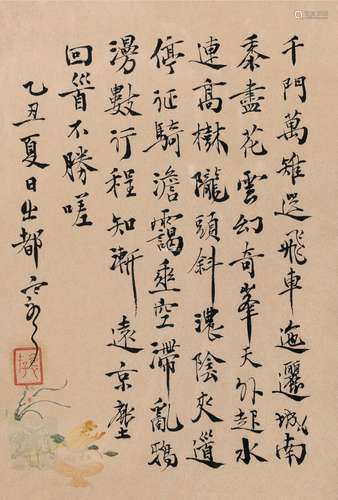 千門萬雉送飛車迤邐城南
黍盡花雲幻奇峯天外起水
連高樹隴頭斜濃陰夾道
停征騎澹靄垂空滯亂鴉
漫數行程知漸遠京塵
回首不勝嗟
乙丑夏日出都